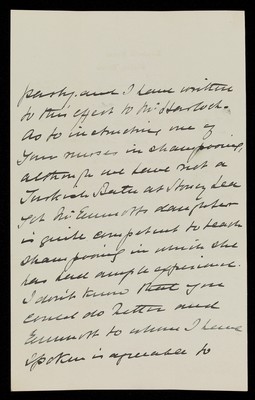 party, and I have written
to this effect to Mr
As to instructing one of
your nurses in shampooing,
although we have not a
Turkish Bath at
yet Mr Emmott's daughter
is quite competent to teach
shampooing in which she
has had ample experience.
I don't know that you
could do better and
Emmott to whom I have
spoken is agreeable to